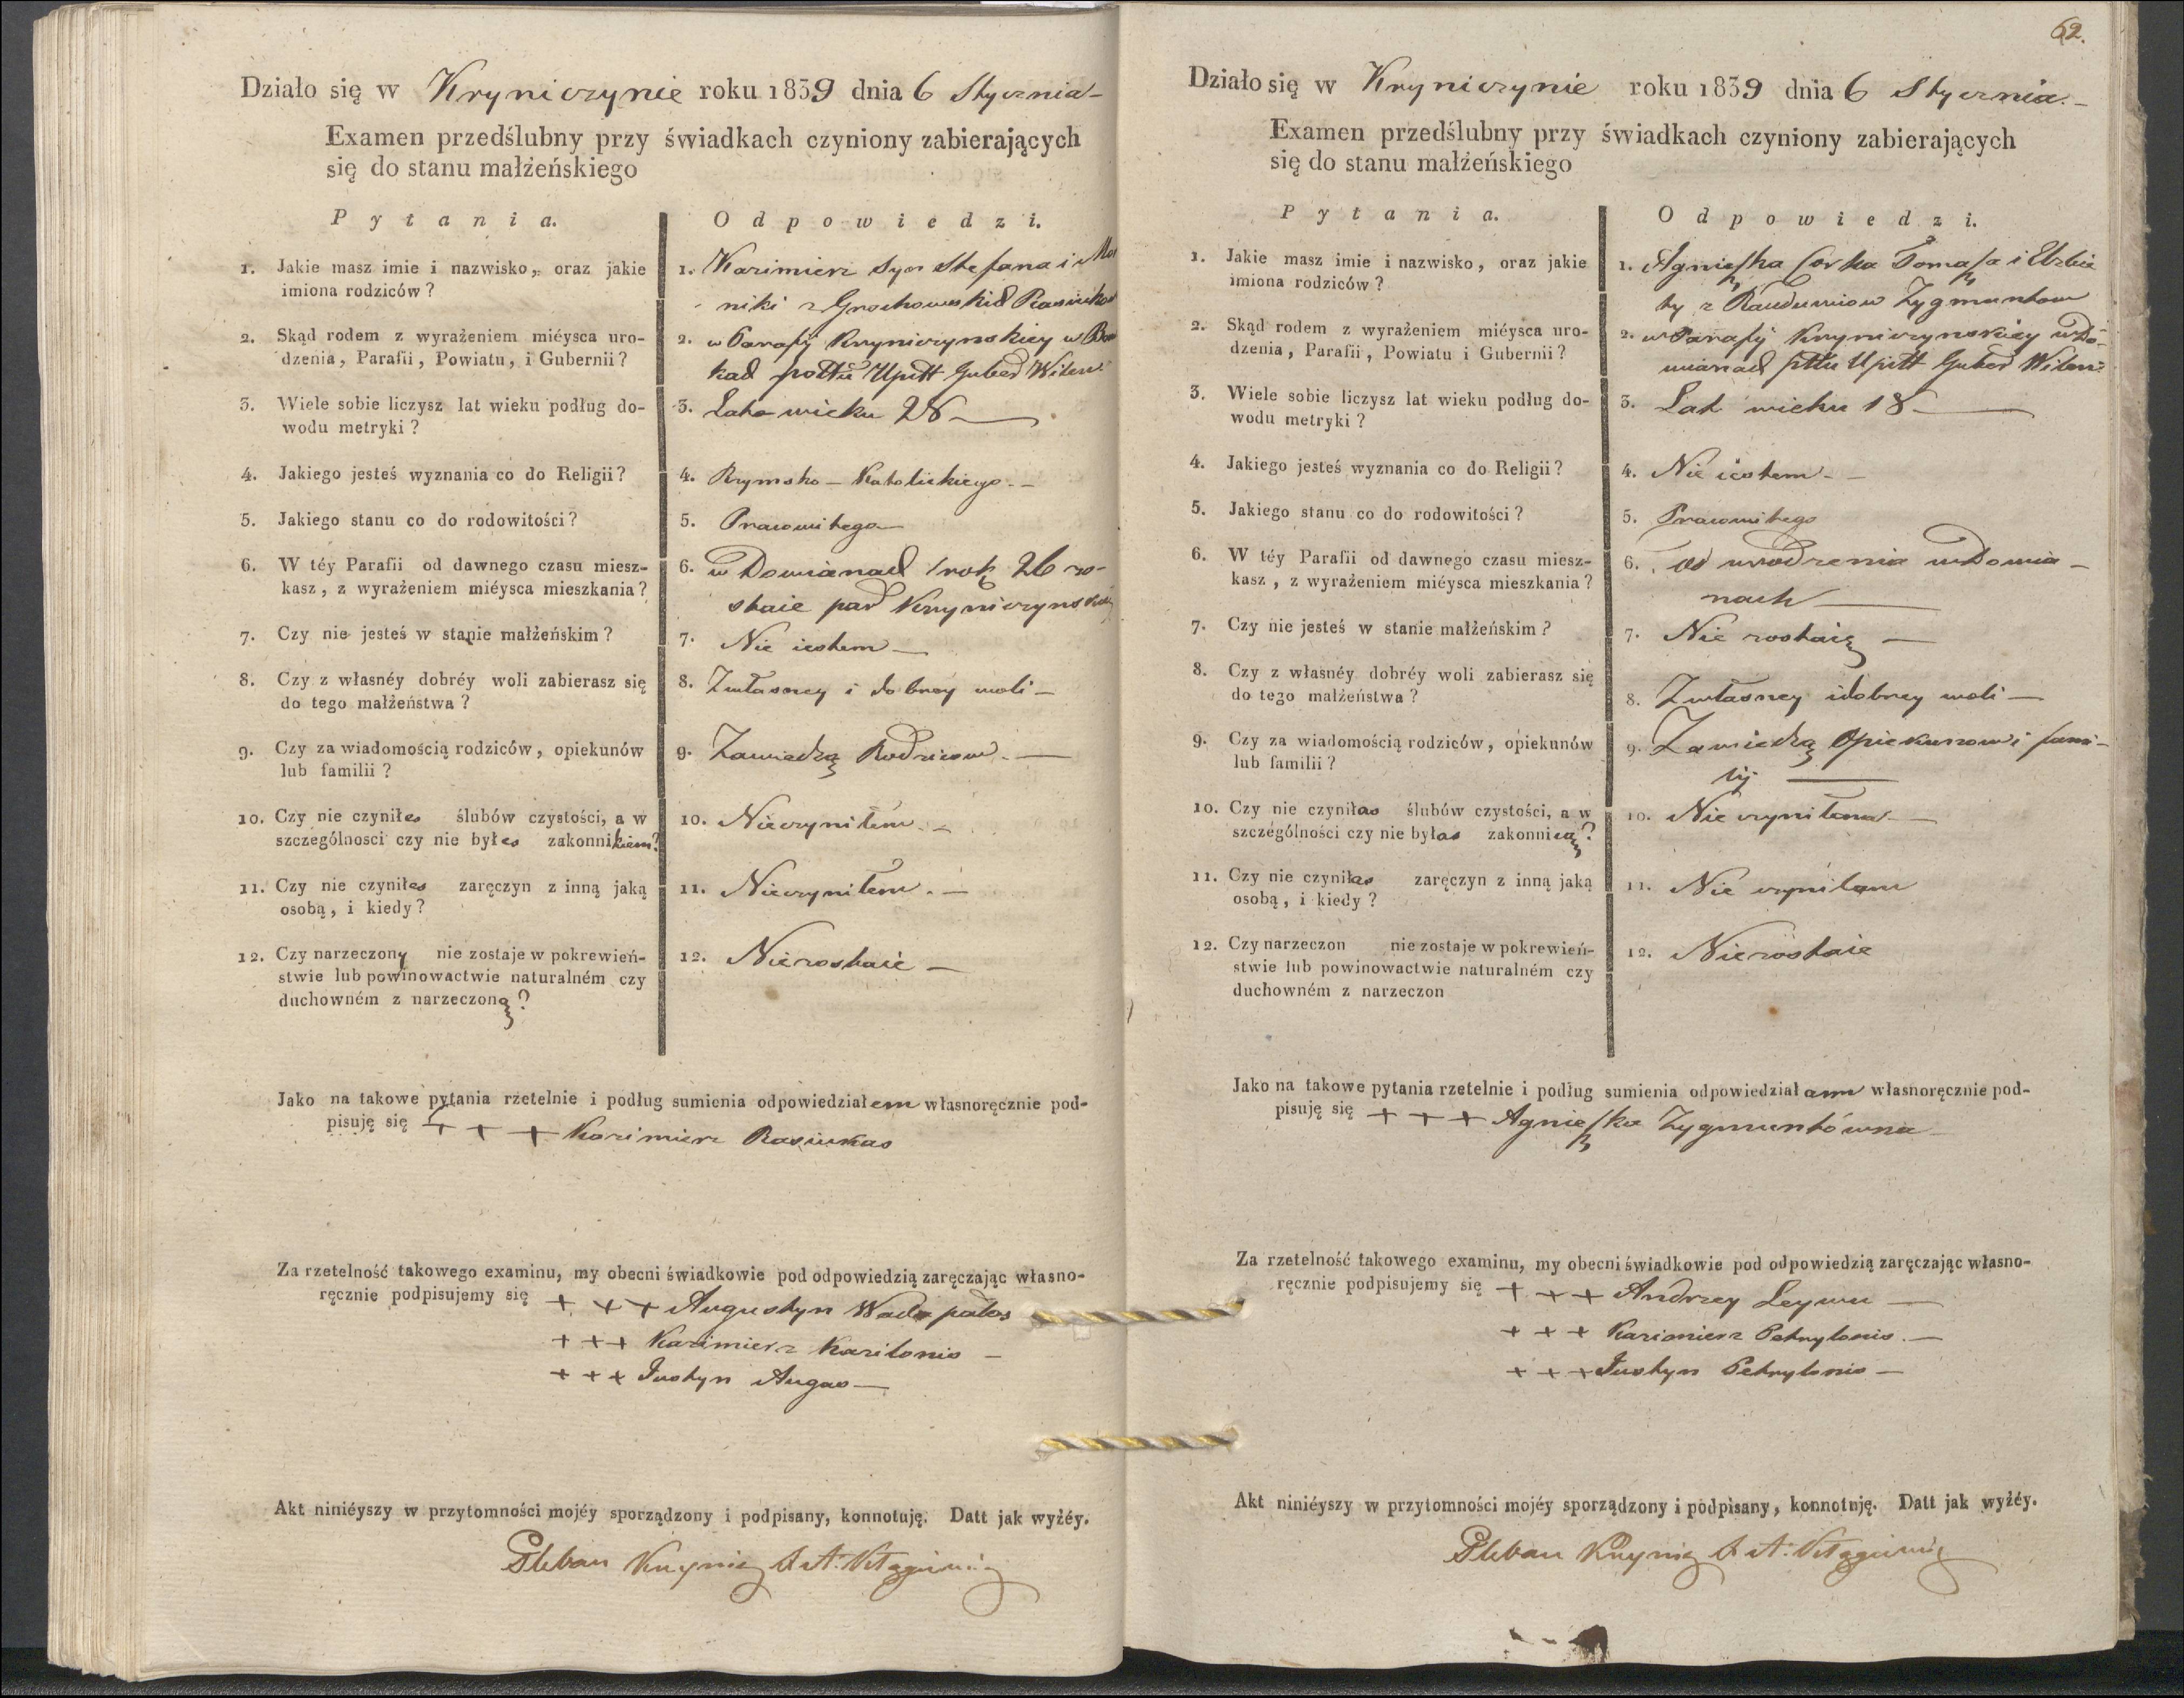 Działo się w Kryniczynie roku 1839 dnia 6 Stycznia
Examen przedślubny przy świadkach czyniony zabierających
się do stanu małżeńskiego
Pytania. Odpowiedzi.
1. Jakie masz imie i nazwisko, oraz jakie
imiona rodziców?
1. Kazimierz Syn Stefana i Mo
niki z Grochowskich
2. Skąd rodem z wyrażeniem miéysca uro-
dzenia, Parafii, Powiatu, i Gubernii?
2. w Parafij Kryniczynskiey w
kach Upitt Guber Wilen
3. Wiele sobie liczysz lat wieku podług do-
wodu metryki?
3. Lat wieku 28
4. Jakiego jesteś wyznania co do Religii?
4. Rzymsko-Katolickiego
5. Jakiego stanu co do rodowitości?
5. Pracowitego
6. W téy Parafii od dawnego czasu miesz-
kasz, z wyrażeniem miéysca mieszkania?
6. w Dowianach rok 26 zo-
staie par Kryniczynskiey
7. Czy nie jesteś w stanie małżeńskim?
7. Nie iestem
8. Czy z własnéy dobréy woli zabierasz się
do tego małżeństwa?
8. Zwłasney i dobrey woli
9. Czy za wiadomością rodziców, opiekunów
lub familii?
9. Zawiedzą Rodzicow
10. Czy nie czyniłes ślubów czystości, a w
szczególnosci czy nie byłes zakonnikiem?
10. Nieczyniłem
11. Czy nie czyniłes zaręczyn z inną jaką
osobą, i kiedy?
11. Nieczyniłem
12. Czy narzeczony nie zostaje w pokrewień-
stwie lub powinowactwie naturalném czy
duchowném z narzeczoną?
12. Niezostaie
Jako na takowe pytania rzetelnie i podług sumienia odpowiedziałem własnoręcznie pod-
pisuję się + + + Kazimierz Rasiukas
Za rzetelność takowego examinu, my obecni świadkowie pod odpowiedzią zaręczając własno-
ręcznie podpisujemy się + + + Augustyn Wadopałos
+ + + Kazimierz Kazilonis
+ + + Justyn Augas
Akt niniéyszy w przytomności mojéy sporządzony i podpisany, konnotuję. Datt jak wyżéy.
Pleban Krynicz
62.
Działo się w Kryniczynie roku 1839 dnia 6 Stycznia
Examen przedślubny przy świadkach czyniony zabierających
się do stanu małżeńskiego
Pytania. Odpowiedzi.
1. Jakie masz imie i nazwisko, oraz jakie
imiona rodziców?
1. Agnieszka Corka Tomasza i Elzbie
ty z Zygmuntow
2. Skąd rodem z wyrażeniem miéysca uro-
dzenia, Parafii, Powiatu i Gubernii?
2. w Parafij Kryniczynskiey w Do-
wianach pttu Upitt Guber Wilen
3. Wiele sobie liczysz lat wieku podług do-
wodu metryki?
3. Lat wieku 18
4. Jakiego jesteś wyznania co do Religii?
4. Nie iestem
5. Jakiego stanu co do rodowitości?
5. Pracowitego
6. W téy Parafii od dawnego czasu miesz-
kasz, z wyrażeniem miéysca mieszkania?
6. od urodzenia w Dowia-
nach
7. Czy nie jesteś w stanie małżeńskim?
7. Nie zostaię
8. Czy z własnéy dobréy woli zabierasz się
do tego małżeństwa?
8. Zwłasney idobrey woli
9. Czy za wiadomością rodziców, opiekunów
lub familii?
9. Zawiedzą Opiekunow i fami-
lij
10. Czy nie czyniłas ślubów czystości, a w
szczególności czy nie byłas zakonnicą?
10. Nie czyniłam
11. Czy nie czyniłas zaręczyn z inną jaką
osobą, i kiedy?
11. Nie czyniłam
12. Czy narzeczon nie zostaje w pokrewień-
stwie lub powinowactwie naturalném czy
duchowném z narzeczon
12. Niezostaie
Jako na takowe pytania rzetelnie i podług sumienia odpowiedziałam własnoręcznie pod-
pisuję się + + + Agnieszka Zygmuntówna
Za rzetelność takowego examinu, my obecni świadkowie pod odpowiedzią zaręczając własno-
ręcznie podpisujemy się + + + Andrzey Leymu
+ + + Kazimierz Petrylonis
+ + + Justyn Petrylonis
Akt niniéyszy w przytomności mojéy sporządzony i podpisany, konnotuję. Datt jak wyżéy.
Pleban Krynicz